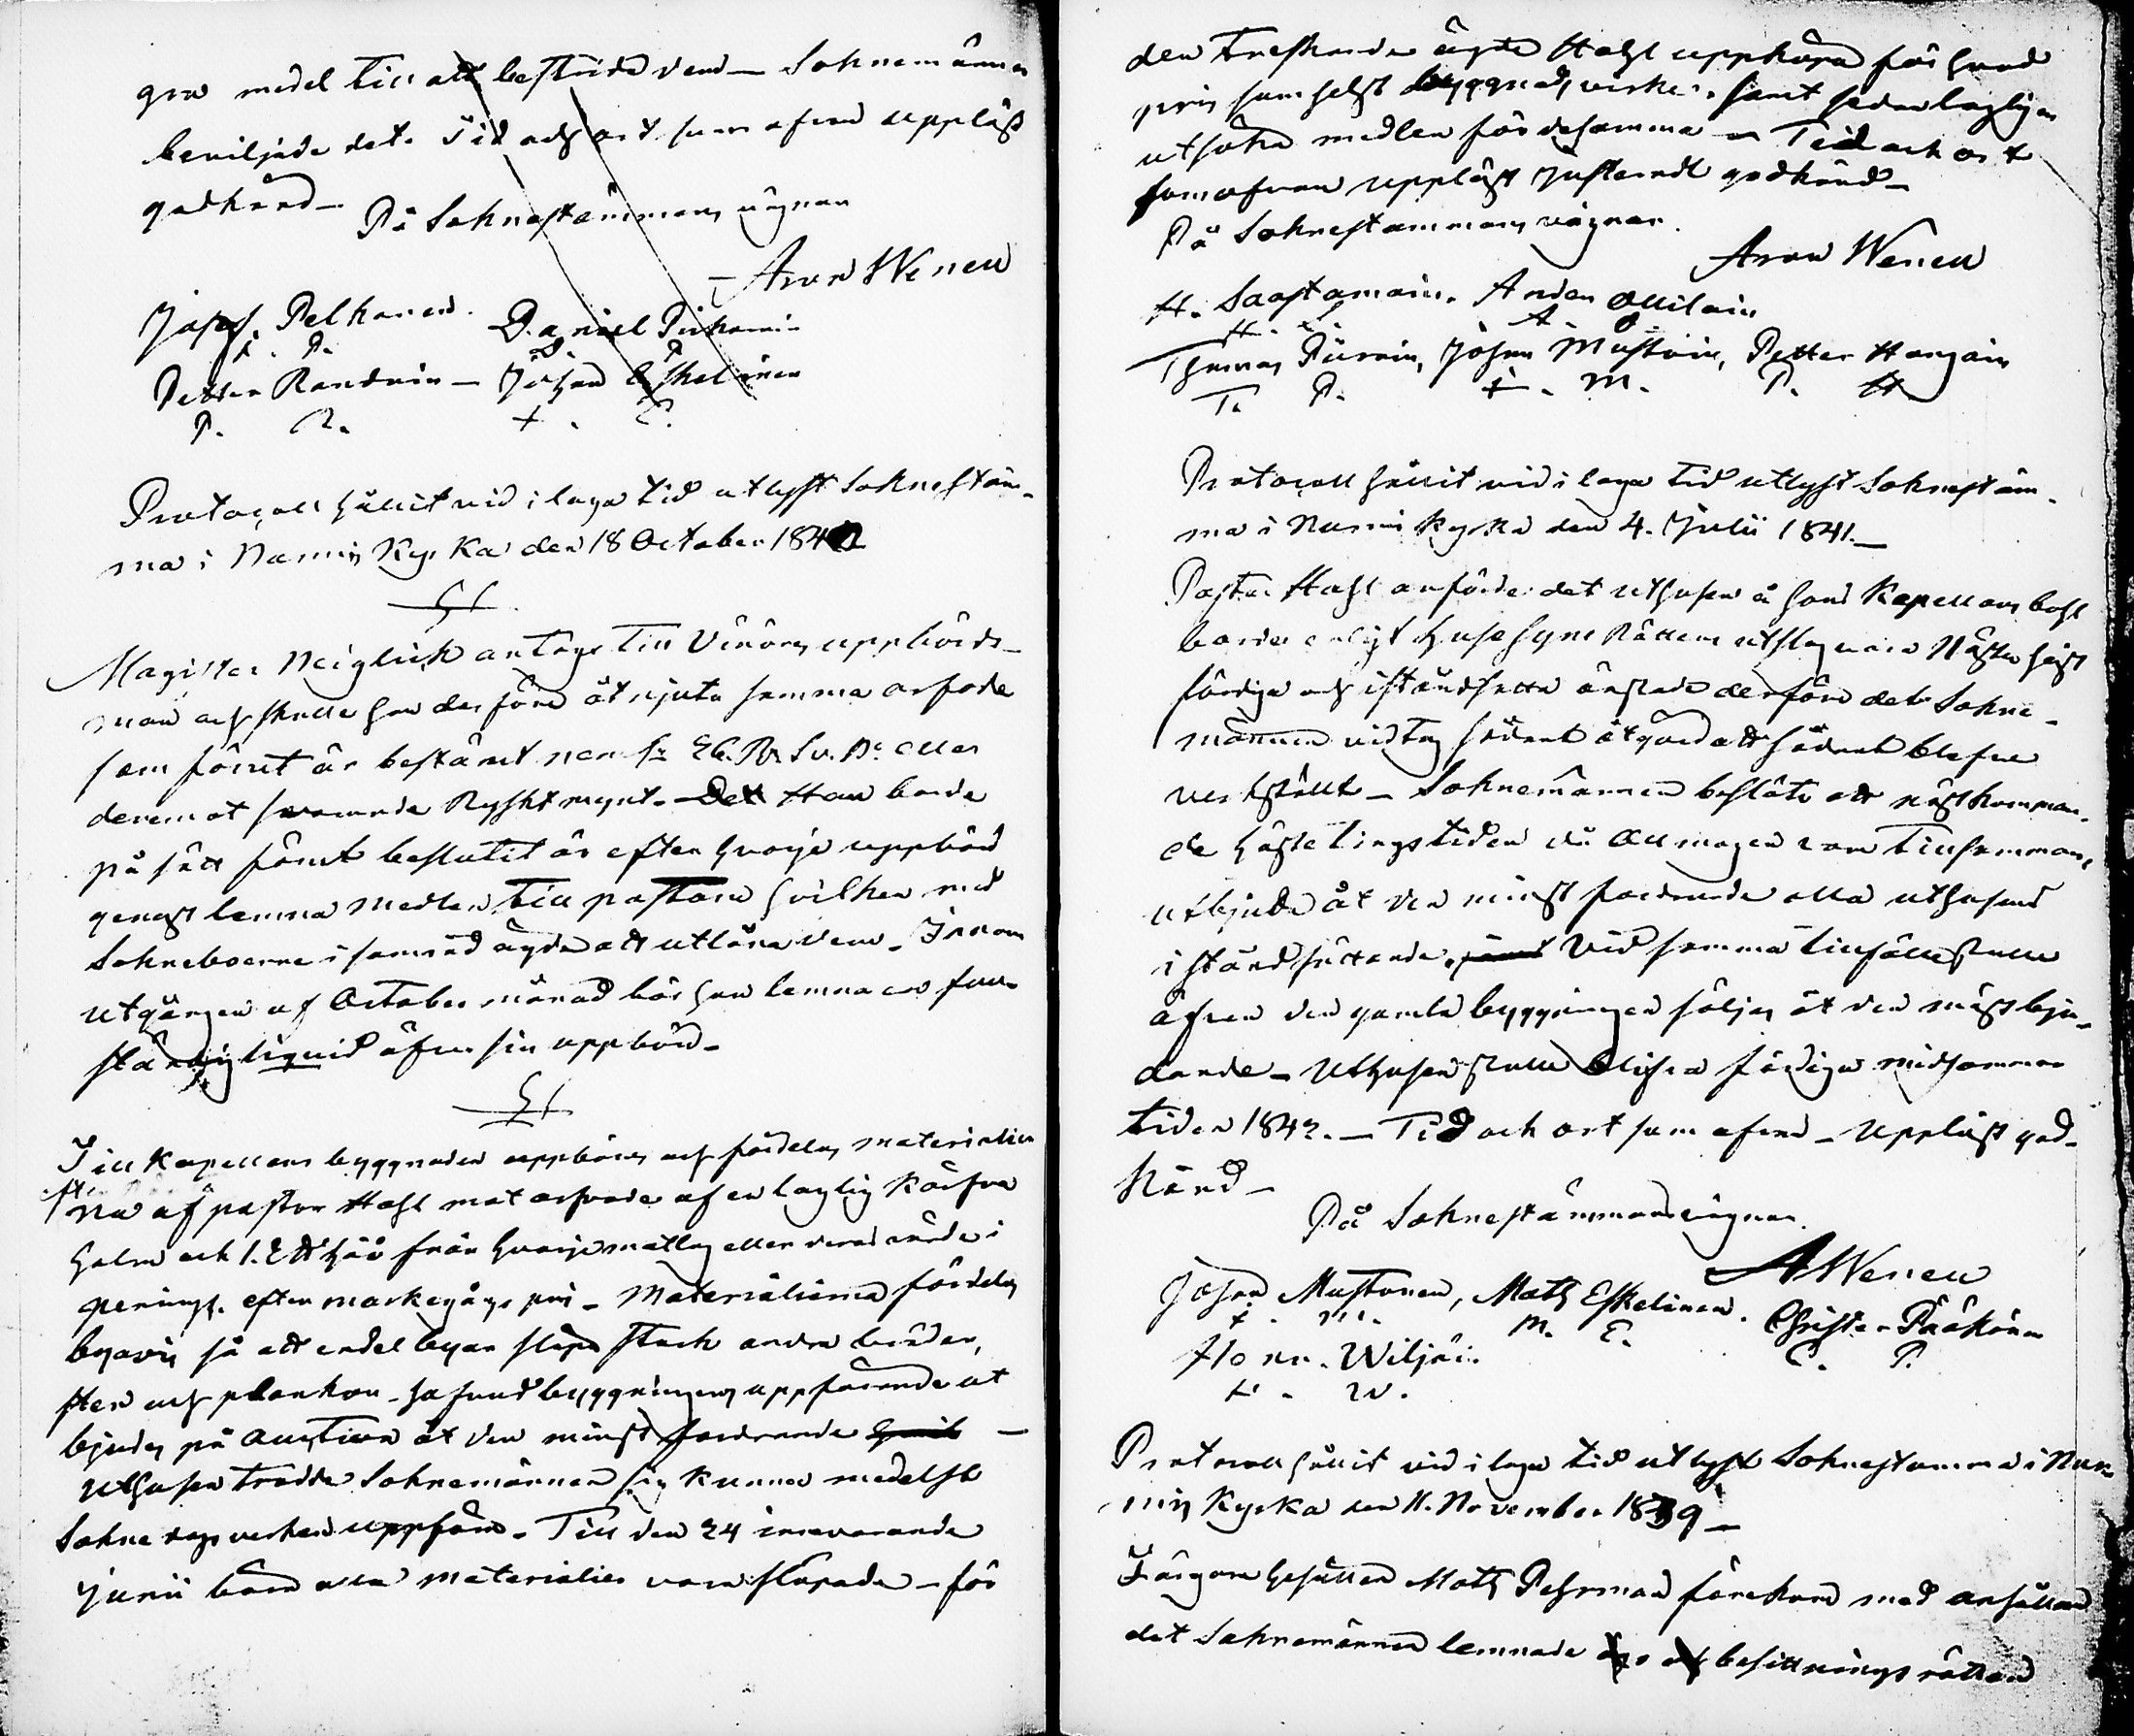 gra medel till att bestrida dem – Soknemännen
beviljade det. Tid och ort som ofvan uppläst
godkänd –
På Soknestämmans vägnar
Aron Wenell
Josef Pelkonen. Daniel Pirhonin
P. D. P.
Petter Randuin – Johan Eskelinen
P. R. + . E.
Protocoll hållit vid i laga tid utlyst Sokneståm-
ma i Nurmis Kyrka den 18 October 184
§1
Magister Neiglick antogs till Vinörs uppbörds-
man och skulle han derföre åtnjuta samma arfode
som förut är bestämt
deremot svarande Ryskt mynt. Han borde
på sätt förut beslutit är efter hvarje uppbörd
genast lemna medlen till pastorn hvilken med
Sokneboerne i samråd ägde att utlåna dem. Innom
utgången af October månad bör han lemna en full-
ständig liquid öfver sin uppbörd –
§1
Till Kapellans byggnaden uppbäres och fördelas materialier
na af pastor Hahl mot arfvode af en laglig kärfva
halm och 1. från hvarje matlag eller deras värde i
penningr. efter markegångs pris – Materialierna fördelas
byavis så att endel byar släpa stock andra bräder,
och plankor – hufvudbyggningens uppförande ut
bjudes på auction åt den minst fordrande –
Uthusen trodde Soknemännen sig kunna medelst
Sokne dagsverken uppföra. Till den 24 innevarande
Junii böra alla materialier vara släpade – för
den Treskande ägde Hahl upphöra för hvad
pris somhelst byggnads virke. samt sedan lagligen
utsöka medlen för desamma – Tid och ort
somofvan uppläst Justeradt godkänd –
På Sokneståmmans vägnar.
Aron Wenell
H. Saastamoin. Anders Ollilain
H. S. A. O.
Thomas Pürain, Johan Mustoin, Petter Hangain
T. P. + . M. P. H
Protocoll hållit vid i laga tid utlyst Soknestäm-
ma i Nurmis kyrka den 4. Julii 1841. –
Pastor Hahl anförde det uthusen å hans Kapellans bohl
borde enligt Husesyns Rättens utslag vara Nästa höst
färdiga och iståndsatta önskade derföre det Sokne-
männen vidtog sådant åtgärd att sådant blefve
verkställt – Sokemännen beslöto att nästkomman-
de Höste tingstiden då Allmogen vore tillsamman,
utbjuda åt den minst fordrande alla uthusens
i ståndsättande. Vid samma tillfälle skulle
äfven den gamla byggningen säljas åt den mäst bju-
dande – Uthusen skulle blifva färdiga midsommar
tiden 1842. – Tid och ort som ofvan – Uppläst god-
känd –
På Sokneståmmans vägnar.
A Wenell
Johan Mustonen, Math Eskelinen. Christer Pääkönen
+ . M. M. E. C. P.
Wiljäi.
+ . W.
Protocoll hållit vid i laga tid utlyst Sokneståmma i Nur-
mis Kyrka den 11. November 1839 –
Färgare gesällen Math Pehrman förekom med anhållan
det Sokneмännen lemnade besittnings rätten